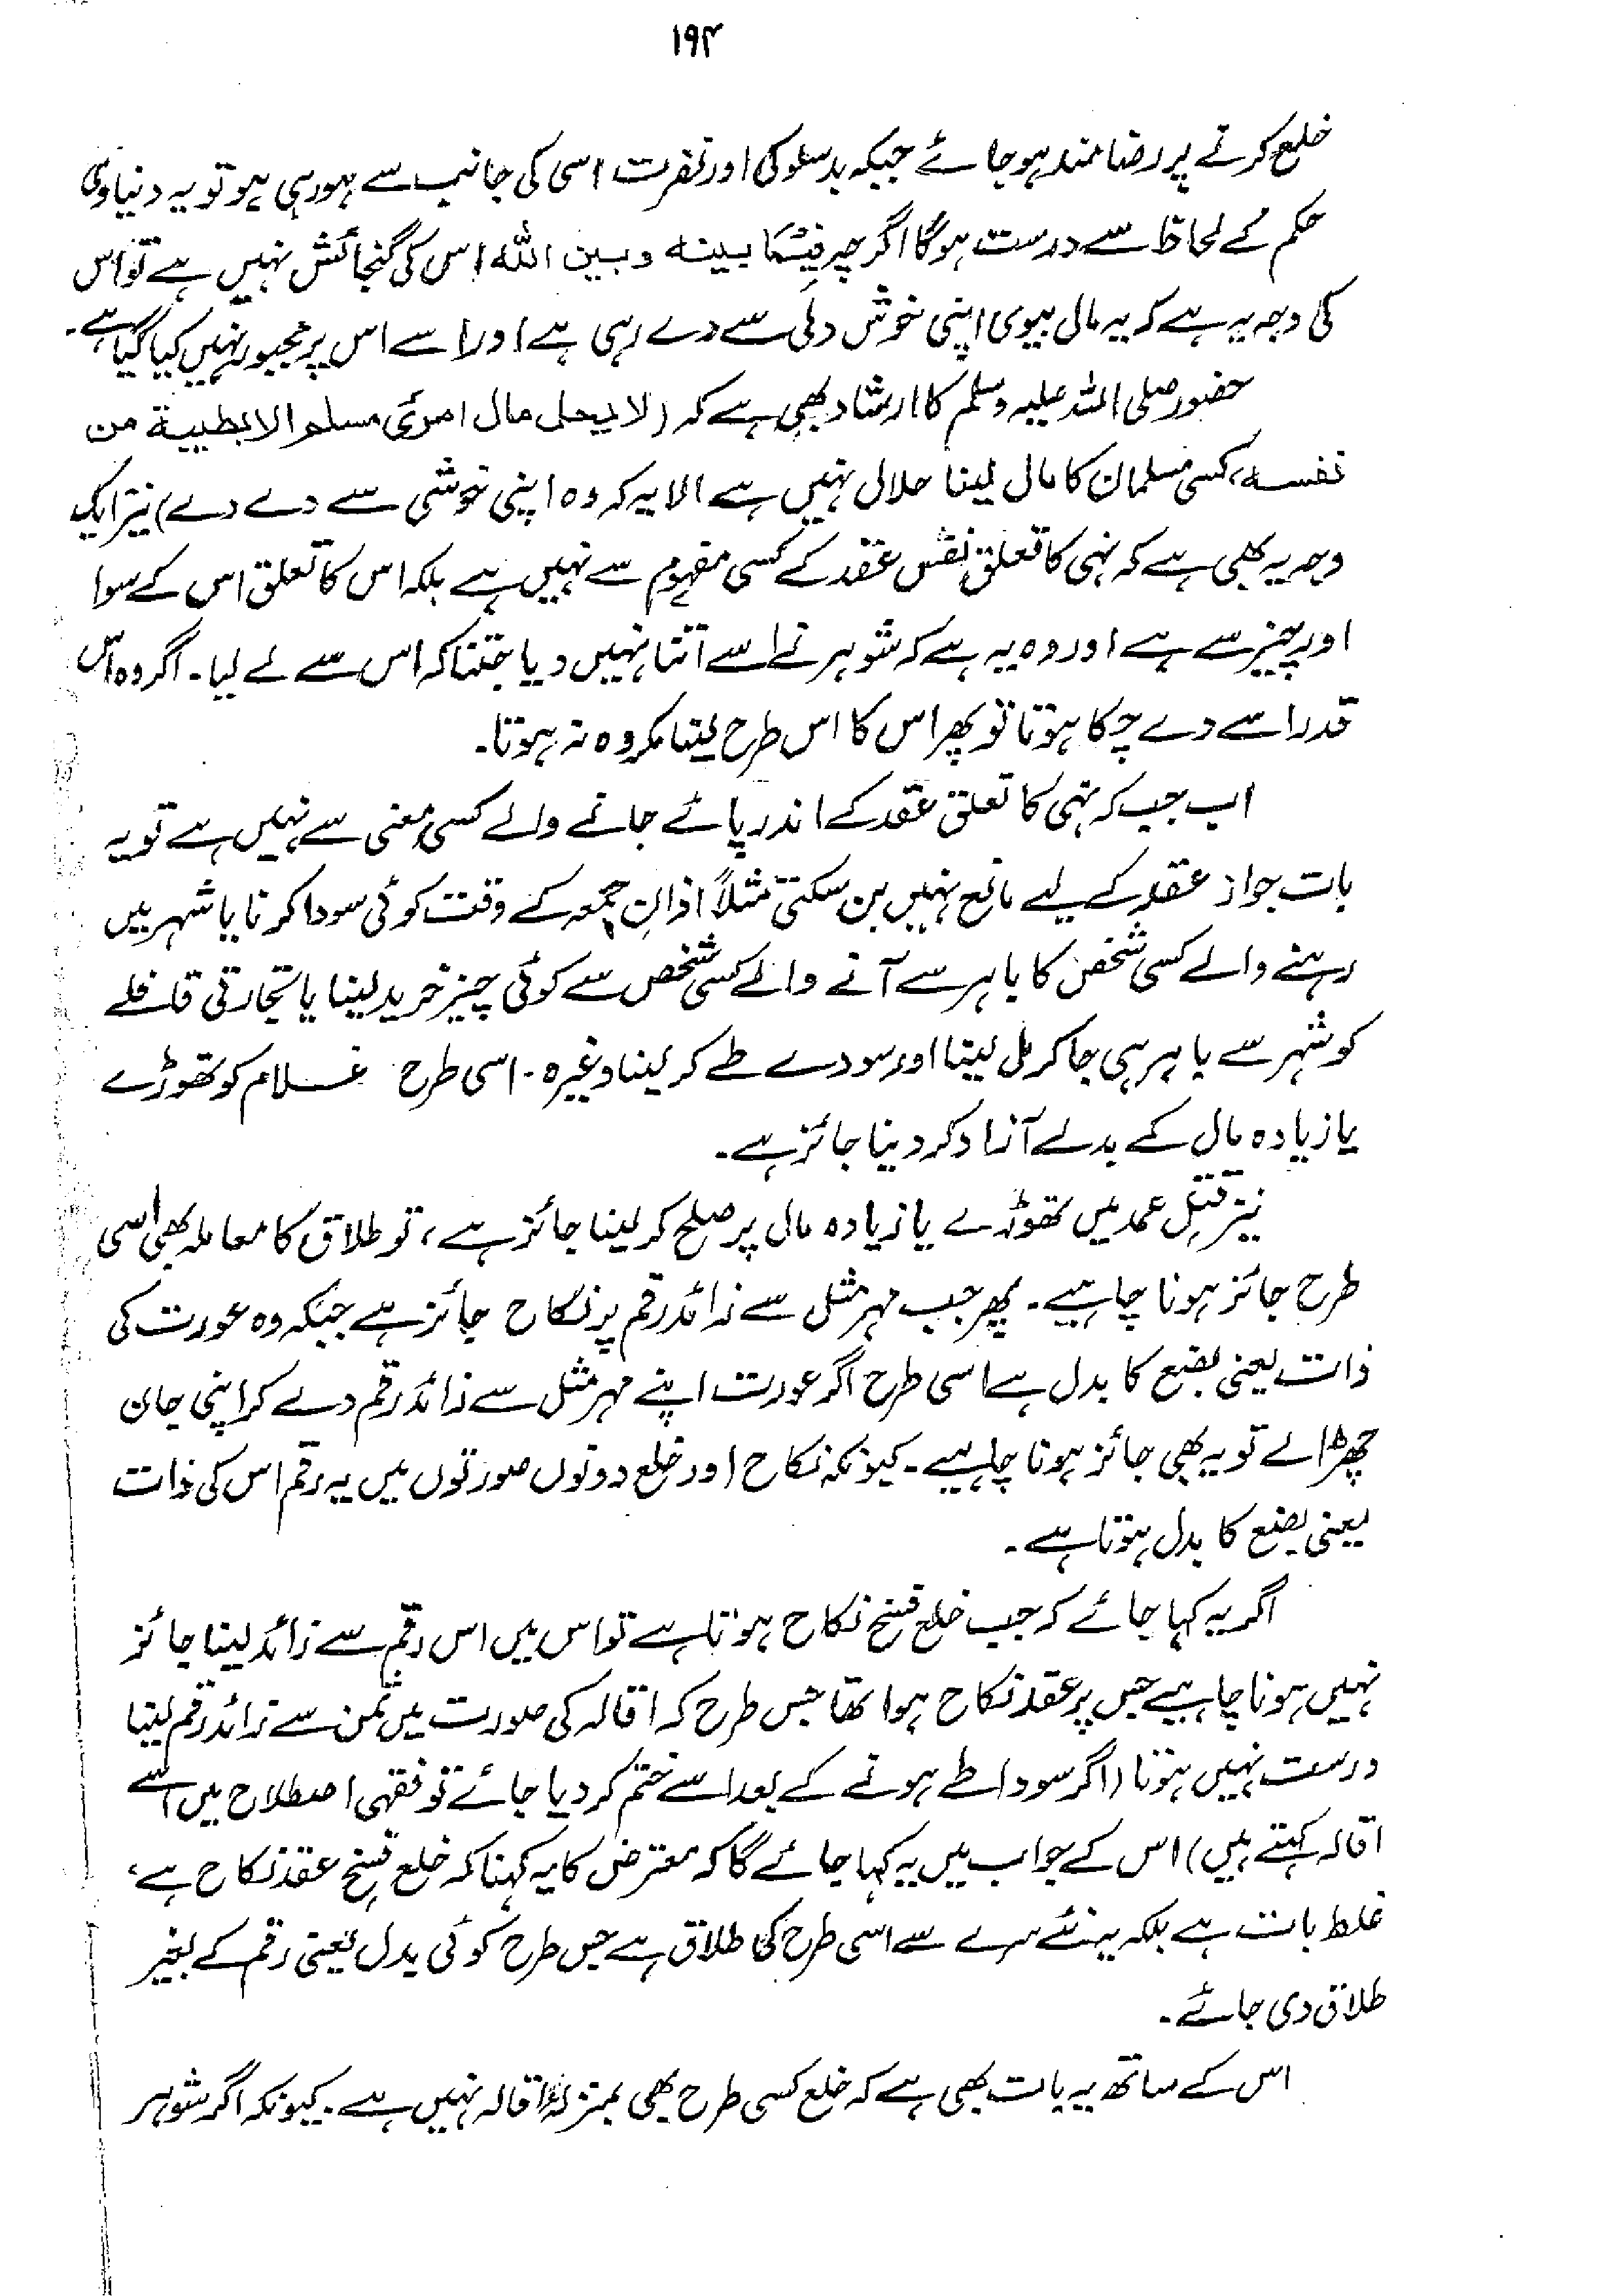 ۱۹۴
خلع کرنے پر رضامند ہو جائے جبکہ بدسلوکی اور نفرت اسی کی جانب سے ہو رہی ہو تو یہ دنیاوی
حکم کے لحاظ سے درست ہوگا اگرچہ فیما بینہ و بین اللہ اس کی گنجائش نہیں ہے تو اس
کی وجہ یہ ہے کہ یہ مال بیوی اپنی خوش دلی سے دے رہی ہے اور اسے اس پر مجبور نہیں کیا گیا ہے۔
حضور صلی اللہ علیہ وسلم کا ارشاد بھی ہے کہ (لا یحل مال امرئ مسلم الا بطیبۃ من
نفسہ، کسی مسلمان کا مال لینا حلال نہیں ہے الا یہ کہ وہ اپنی خوشی سے دے دے) نیز ایک
وجہ یہ بھی ہے کہ نہی کا تعلق نفس عقد کے کسی مفہوم سے نہیں ہے بلکہ اس کا تعلق اس کے سوا
اور چیز سے ہے اور وہ یہ ہے کہ شوہر نے اسے اتنا نہیں دیا جتنا کہ اس سے لے لیا۔ اگر وہ اس
قدر اسے دے چکا ہوتا تو پھر اس کا اس طرح لینا مکروہ نہ ہوتا۔
اب جب کہ نہی کا تعلق عقد کے اندر پائے جانے والے کسی معنی سے نہیں ہے تو یہ
بات جواز عقد کے لیے مانع نہیں بن سکتی مثلاً اذانِ جمعہ کے وقت کوئی سودا کرنا یا شہر میں
رہنے والے کسی شخص کا باہر سے آنے والے کسی شخص سے کوئی چیز خرید لینا یا تجارتی قافلے
کو شہر سے باہر ہی جا کر مل لینا اور سودے طے کر لینا وغیرہ۔ اسی طرح غلام کو تھوڑے
یا زیادہ مال کے بدلے آزاد کر دینا جائز ہے۔
نیز قتلِ عمد میں تھوڑے یا زیادہ مال پر صلح کر لینا جائز ہے، تو طلاق کا معاملہ بھی اسی
طرح جائز ہونا چاہیے۔ پھر جب مہر مثل سے زائد رقم پر نکاح جائز ہے جبکہ وہ عورت کی
ذات یعنی بضع کا بدل ہے اسی طرح اگر عورت اپنے مہر مثل سے زائد رقم دے کر اپنی جان
چھڑا لے تو یہ بھی جائز ہونا چاہیے۔ کیونکہ نکاح اور خلع دونوں صورتوں میں یہ رقم اس کی ذات
یعنی بضع کا بدل ہوتا ہے۔
اگر یہ کہا جائے کہ جب خلع فسخ نکاح ہوتا ہے تو اس میں اس رقم سے زائد لینا جائز
نہیں ہونا چاہیے جس پر عقد نکاح ہوا تھا جس طرح کہ اقالہ کی صورت میں ثمن سے زائد رقم لینا
درست نہیں ہوتا (اگر سودا طے ہونے کے بعد اسے ختم کر دیا جائے تو فقہی اصطلاح میں اسے
اقالہ کہتے ہیں) اس کے جواب میں یہ کہا جائے گا کہ معترض کا یہ کہنا کہ خلع فسخِ عقد نکاح ہے،
غلط بات ہے بلکہ یہ نئے سرے سے اسی طرح کی طلاق ہے جس طرح کوئی بدل یعنی رقم کے بغیر
طلاق دی جائے۔
اس کے ساتھ یہ بات بھی ہے کہ خلع کسی طرح بھی بمنزلۂ اقالہ نہیں ہے۔ کیونکہ اگر شوہر